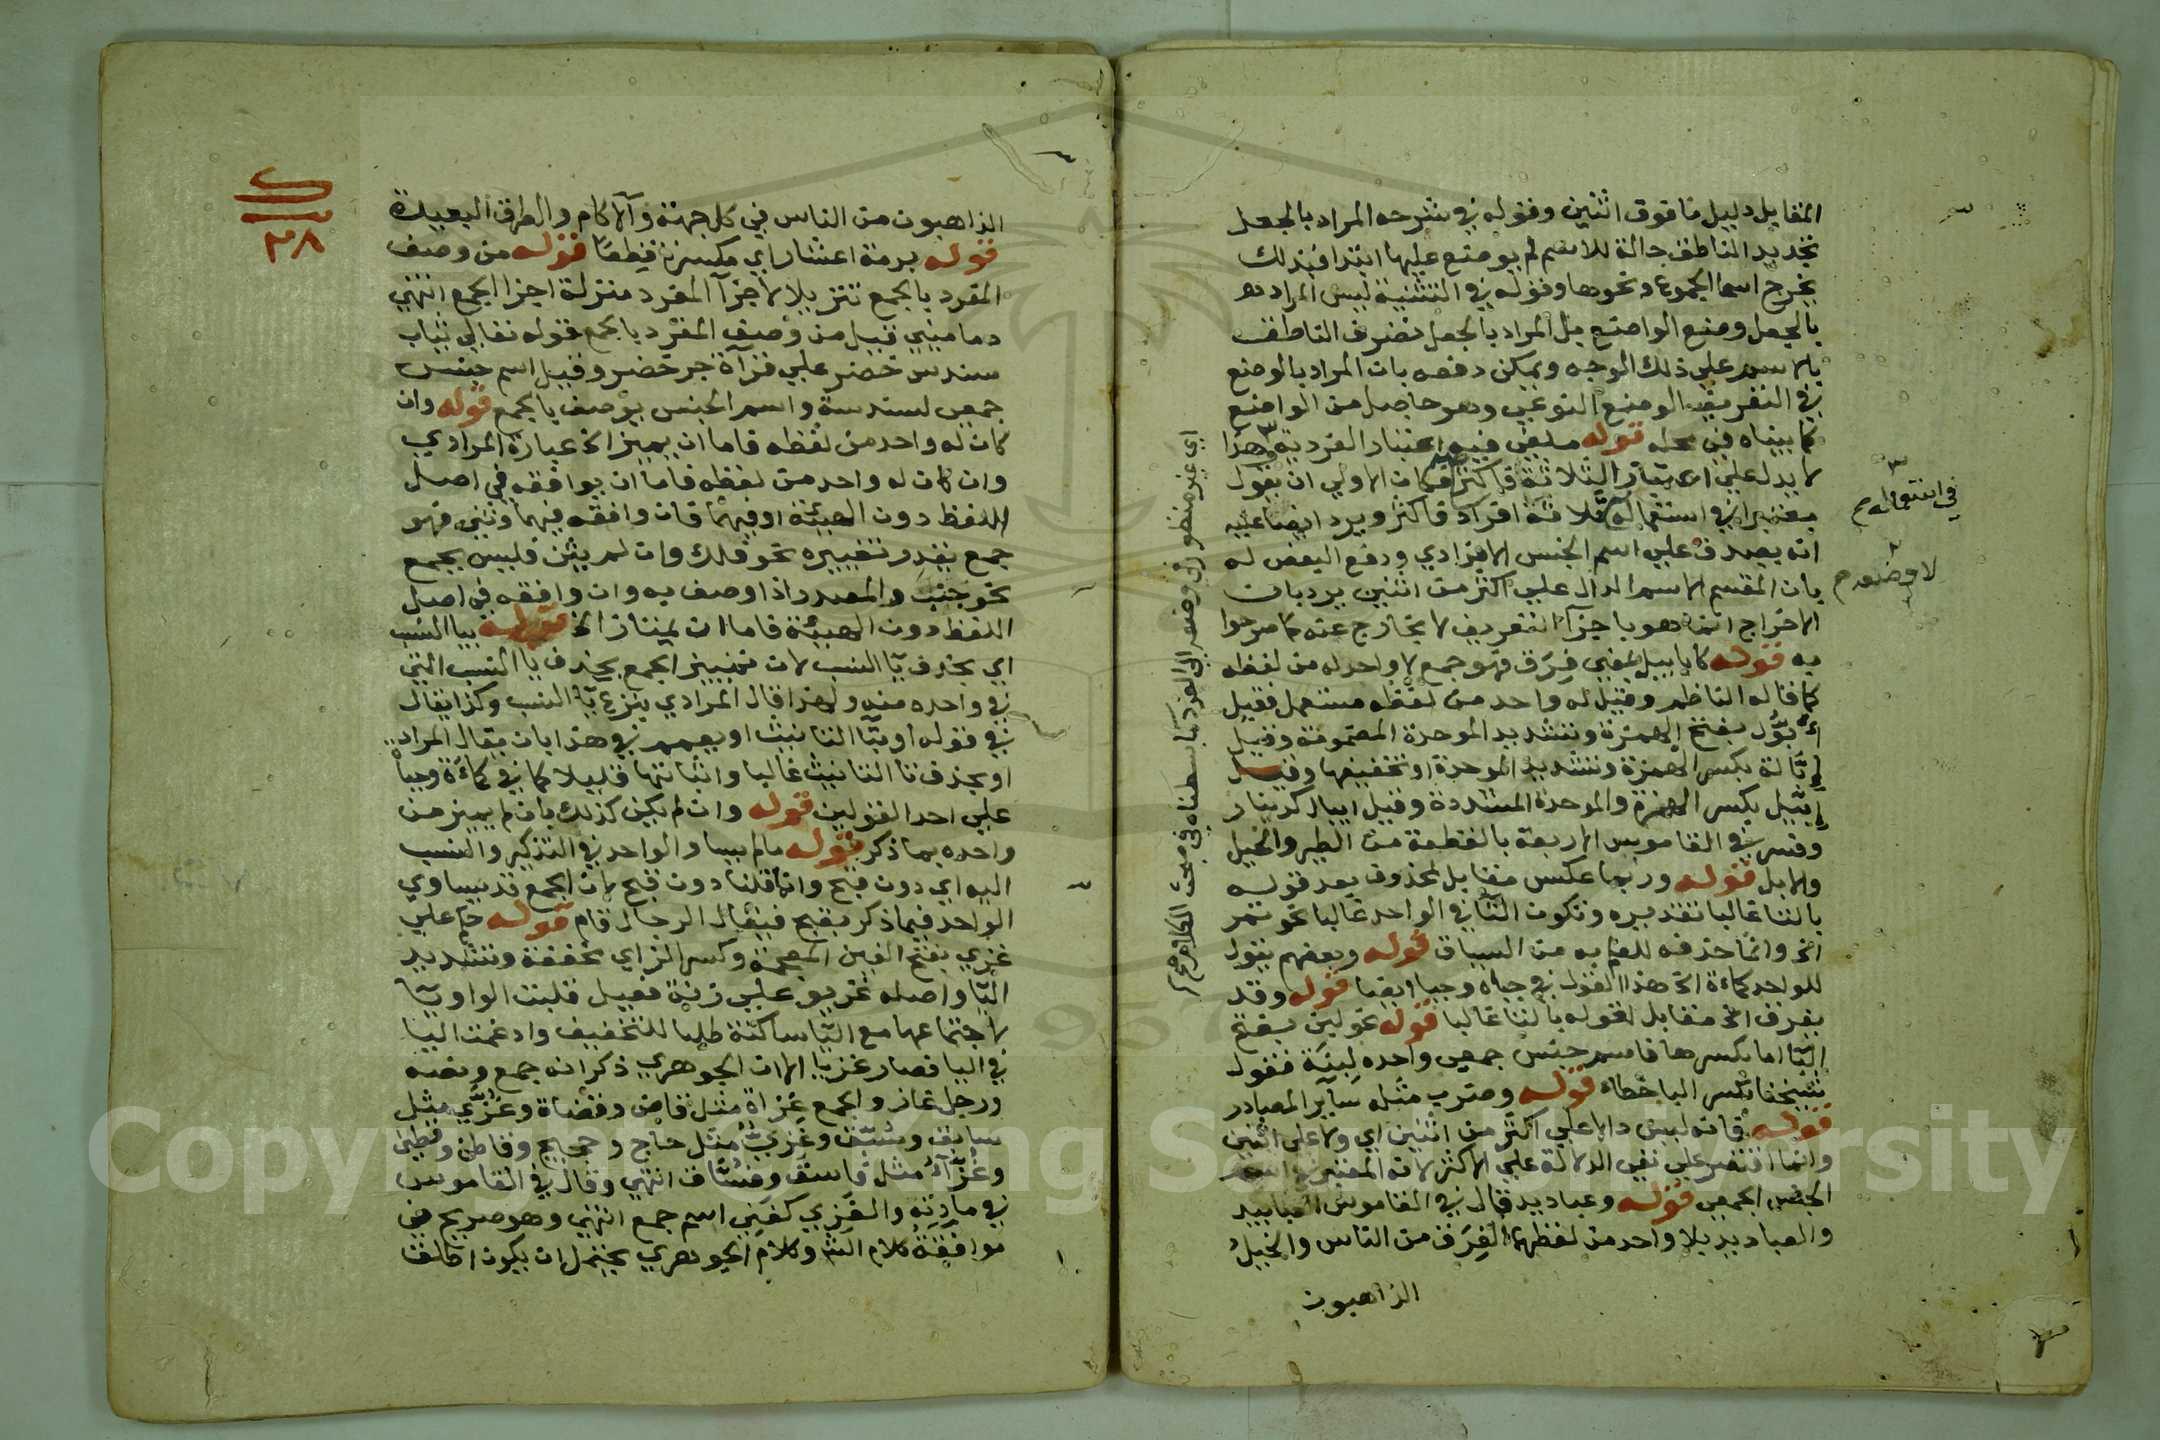 المقابل دليل ما فوق اثنين وقوله في شرحه المراد بالجعل
تجديد الناطق حالة للاسم لم يوضع عليها ابتدا فبذلك
يخرج اسما الجموع ونحوها وقوله في التثنية ليس المراد
بالجعل وضع الواضع بل المراد بالجعل تصرف الناطق
بالاسم علي ذلك الوجه ويمكن دفعه بان المراد بالوضع
في التعريف الوضع النوعي وهو حاصل من الواضع
كما بيناه في محله قوله ملغي فيه اعتبار الفردية هذا
لا يدل علي اعتبار الثلاثة فاكثر فكان الاولي ان يقول
معتبرا في استعماله ثلاثة افراد فاكثر ويرد ايضا عليه
انه يصدق علي اسم الجنس الافرادي ودفع البعض له
بان المقسم الاسم الدال علي اكثر من اثنين يرد بان
الاخراج انما هو باجزآ التعريف لا بخارج عنه كما صرحوا
به قوله كابابيل بمعني فرق فهو جمع لا واحد له من لفظه
كما قاله الناظم وقيل له واحد من لفظه مستعمل فقيل
ابّول بفتح الهمزة وتشديد الموحدة المضمومة وقيل
إبّالة بكسر الهمزة وتشديد الموحدة او تخفيفها وقيل
إبّيل بكسر الهمزة والموحدة المشددة وقيل ايبال كدينار
وفسر في القاموس الاربعة بالقطعة من الطير والخيل
والابل قوله وربما عكس مقابل لمحذوف بعد قوله
بالتا غالبا تقديره وتكون التا في الواحد غالبا نحو تمر
الخ وانما حذفه للعلم به من السياق قوله وبعضهم يقول
للواحد كماءة الخ هذا القول في جباه وجبا ايضا قوله وقد
يفرق الخ مقابل لقوله بالتا غالبا قوله نحو لبن بفتح
البا اما بكسرها فاسم جنس جمعي واحده لبنة فقول
شيخنا بكسر البا خطاء قوله وضرب مثله سآير المصادر
قوله فانه ليس دالا علي اكثر من اثنين اي ولا علي اثنين
وانما اقتصر علي نفي الدلالة علي الاكثر لانه المعتبر في اسم
الجنس الجمعي قوله وعباديد قال في القاموس العبابيد
والعباديد بلا واحد من لفظهما الفِرَق من الناس والخيل
الذاهبون
في استعماله صح
لا وضعه صح
اي غير منظور في وضعه الي الفرد كما بسطناه في مبحث الكلام صح
الذاهبون من الناس في كل جهة والآكام والطرق البعيدة
قوله برمة اعشار اي مكسرة قِطَعًا قوله من وصف
المفرد بالجمع تنزيلا لاجزآ المفرد منزلة اجزا الجمع انتهي
دماميني قيل من وصف المفرد بالجمع قوله تعالي ثياب
سندس خضر علي قرآة جر خضر وقيل اسم جنس
جمعي لسندسة واسم الجنس يوصف بالجمع قوله وان
كان له واحد من لفظه فاما ان يميز الخ عبارة المرادي
وان كان له واحد من لفظه فاما ان يوافقه في اصل
اللفظ دون الهيئة او فيهما فان وافقه فيهما وثني فهو
جمع يقدر تغييره نحو فلك وان لم يثن فليس بجمع
نحو جنب والمصدر اذا وصف به وان وافقه في اصل
اللفظ دون الهيئة فاما ان يمتاز الخ قوله بيا النسب
اي بحذف يآ النسب لان تمييز الجمع بحذف يا النسب التي
في واحده منه ولهذا قال المرادي بنزع يآ النسب وكذا يقال
في قوله او بتا التانيث او يعمم في هذا بان يقال المراد
او بحذف تا التانيث غالبا واثباتها قليلا كما في كماءة وجباة
علي احد القولين قوله وان لم يكن كذلك بان لم يميز من
واحده بما ذكر قوله ما لم يساو الواحد في التذكير والنسب
اليه اي دون قبح وانما قلنا دون قبح لان الجمع قد يساوي
الواحد فيما ذكر بقبح فيقال الرجال قام قوله حكم علي
غزي بفتح الغين المعجمة وكسر الزاي مخففة وتشديد
اليا واصله غزيو علي زنة فعيل قلبت الواو يآ
لاجتماعها مع اليا ساكنة طلبا للتخفيف وادغمت اليا
في اليا فصار غزيا الا ان الجوهري ذكر انه جمع ونصه
ورجل غاز والجمع غزاة مثل قاض وقضاة وغُزًّي مثل
سابق وسُبَّق وغَزِيّ مثل حاج وحجيج وقاطن وقطين
وغُزّآء مثل فاسق وفُسّاق انتهي وقال في القاموس
في مادته والغَزِي كغَنِي اسم جمع انتهي وهو صريح في
موافقة كلام الش وكلام الجوهري يحتمل ان يكون اطلق
٣٨
Copyright © King Saud University
1957